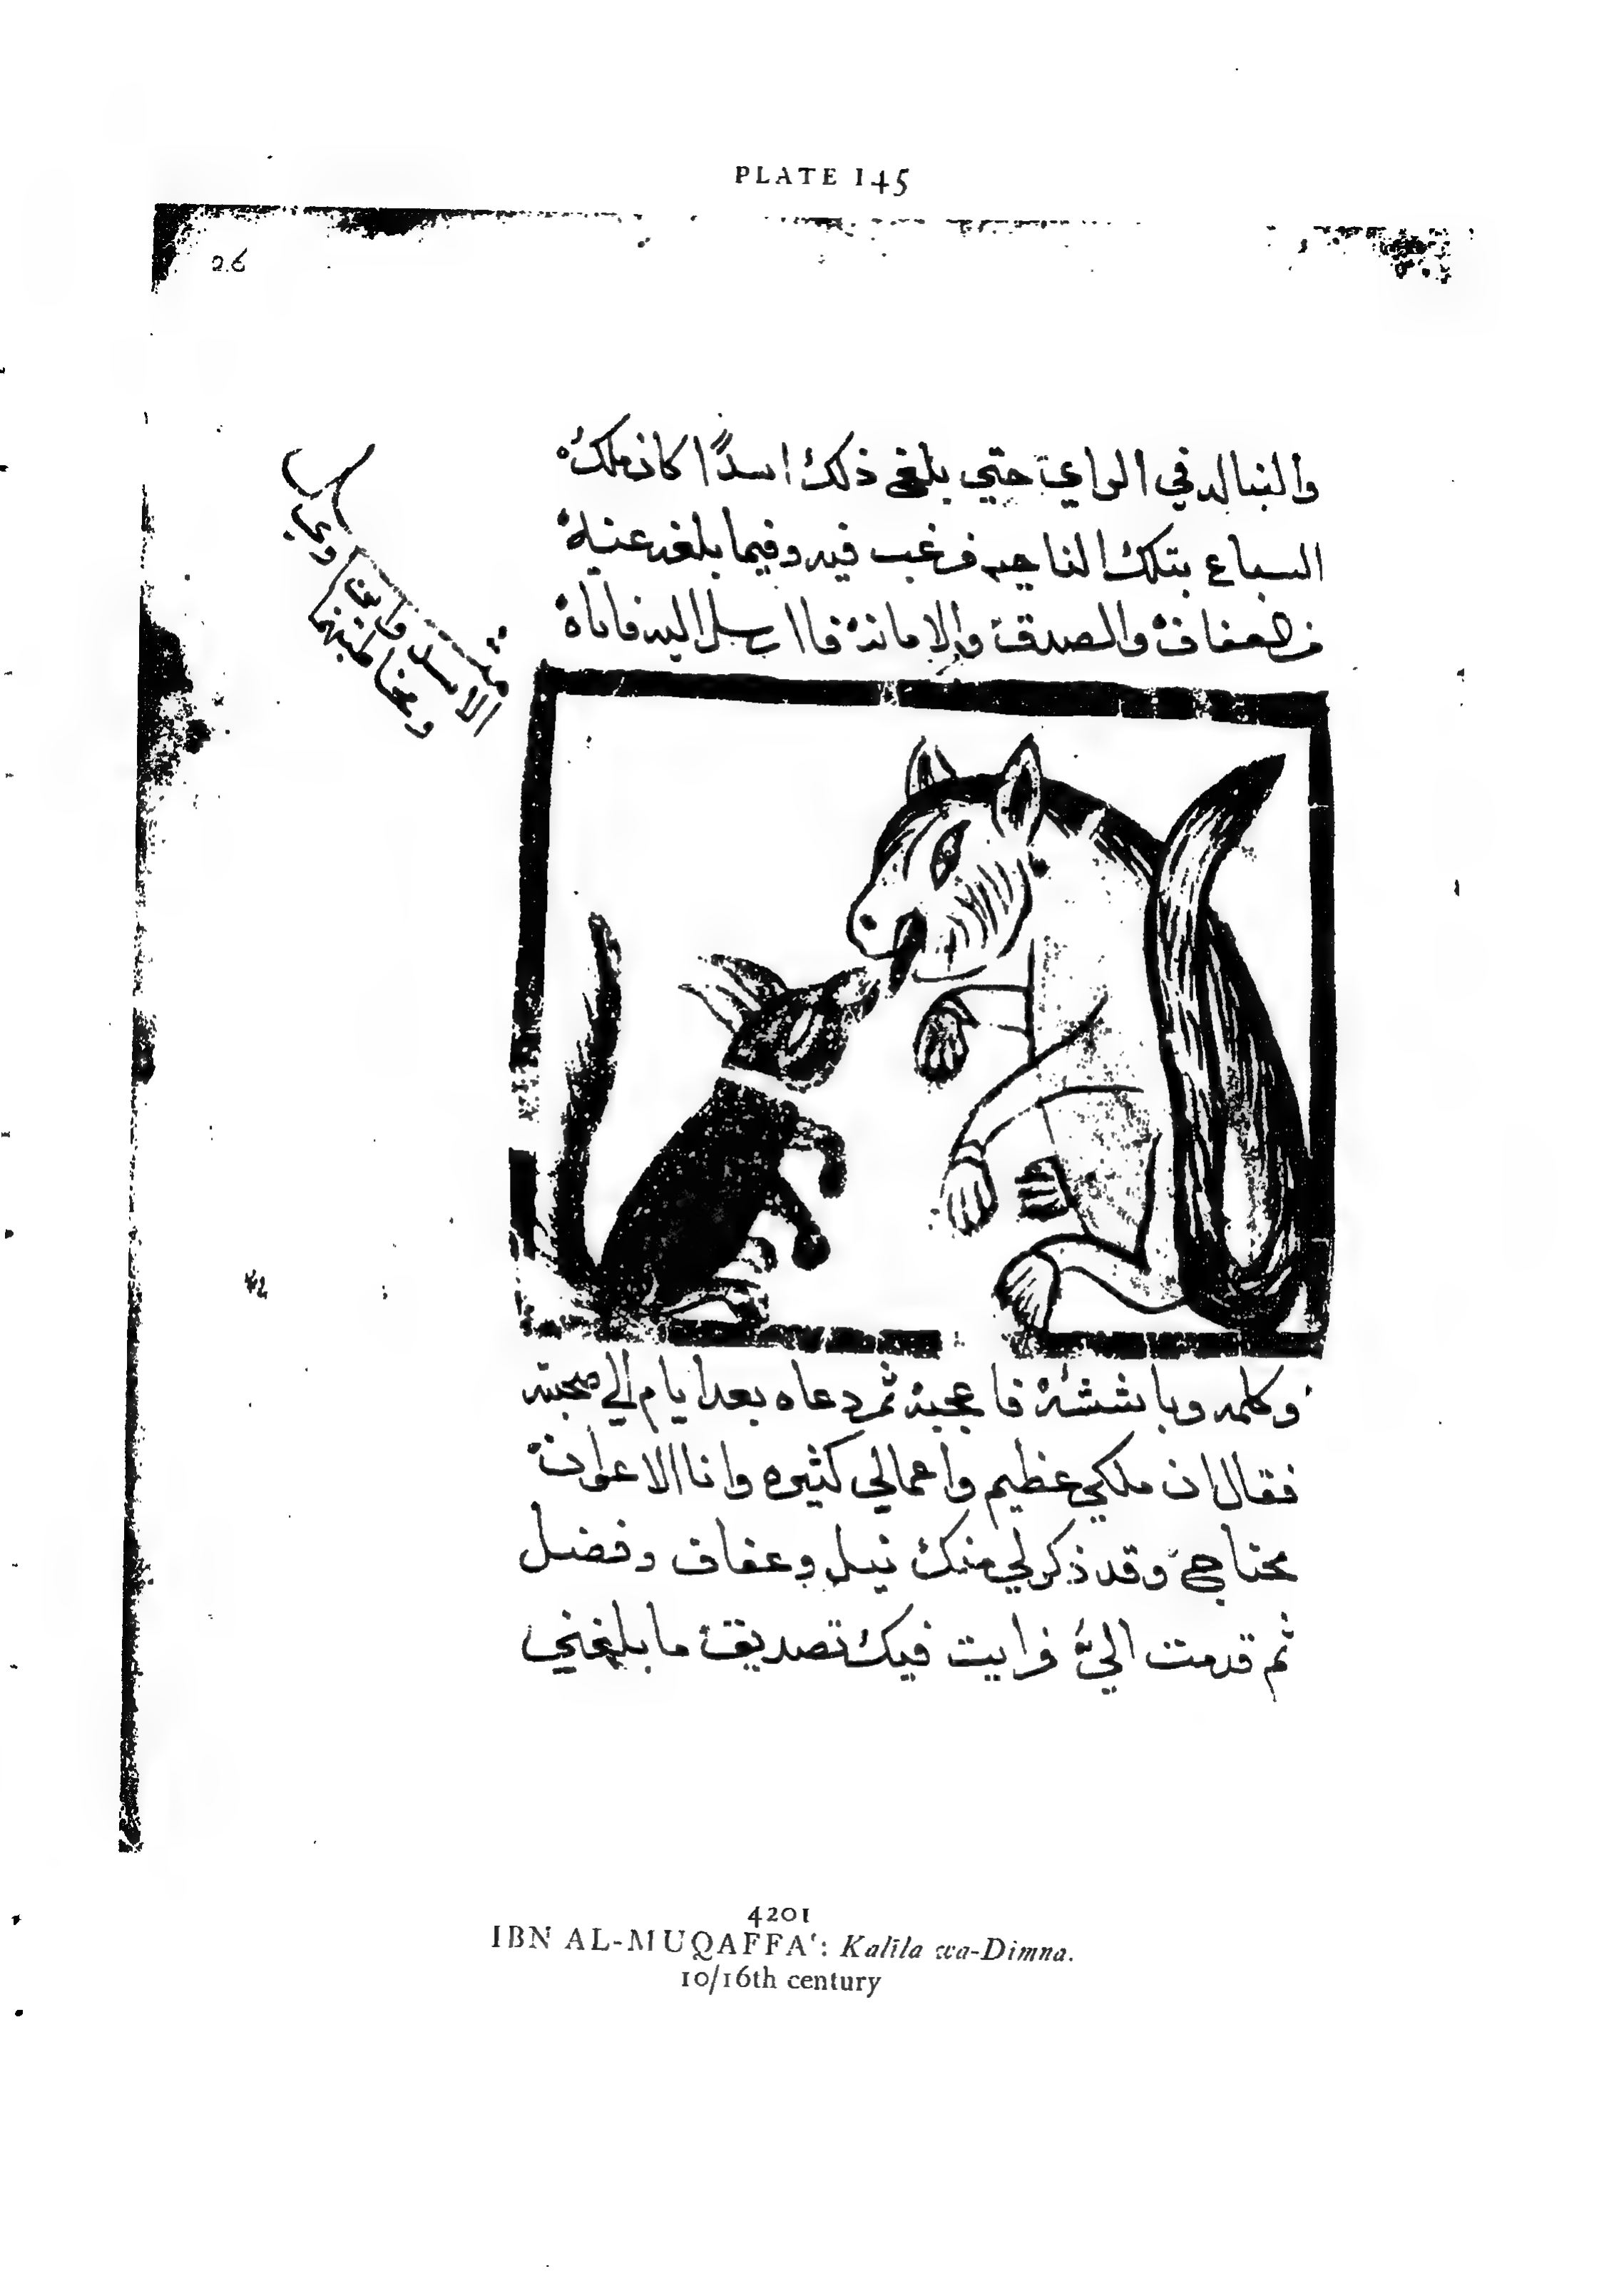 PLATE 145
26
والنبالة في الراي حتي بلغ ذلك اسدًا كان ملك
السباع بتلك الناحيه فرغب فيه وفيما بلغه عنه
من العفاف والصدق والامانة فاارسل اليه فاتاه
مثل
الاسد وابن اوي
وكلمه وباششه فاعجبه ثم دعاه بعد ايام الي صحبته
فقال ان ملكي عظيم واعمالي كثيره وانا الا عوان
محتاج وقد ذكر لي منك نبل وعفاف وفضل
ثم قدمت اليّ فرايت فيك تصديق ما بلغني
4201
IBN AL-MUQAFFAʿ: Kalīla wa-Dimna.
10/16th century